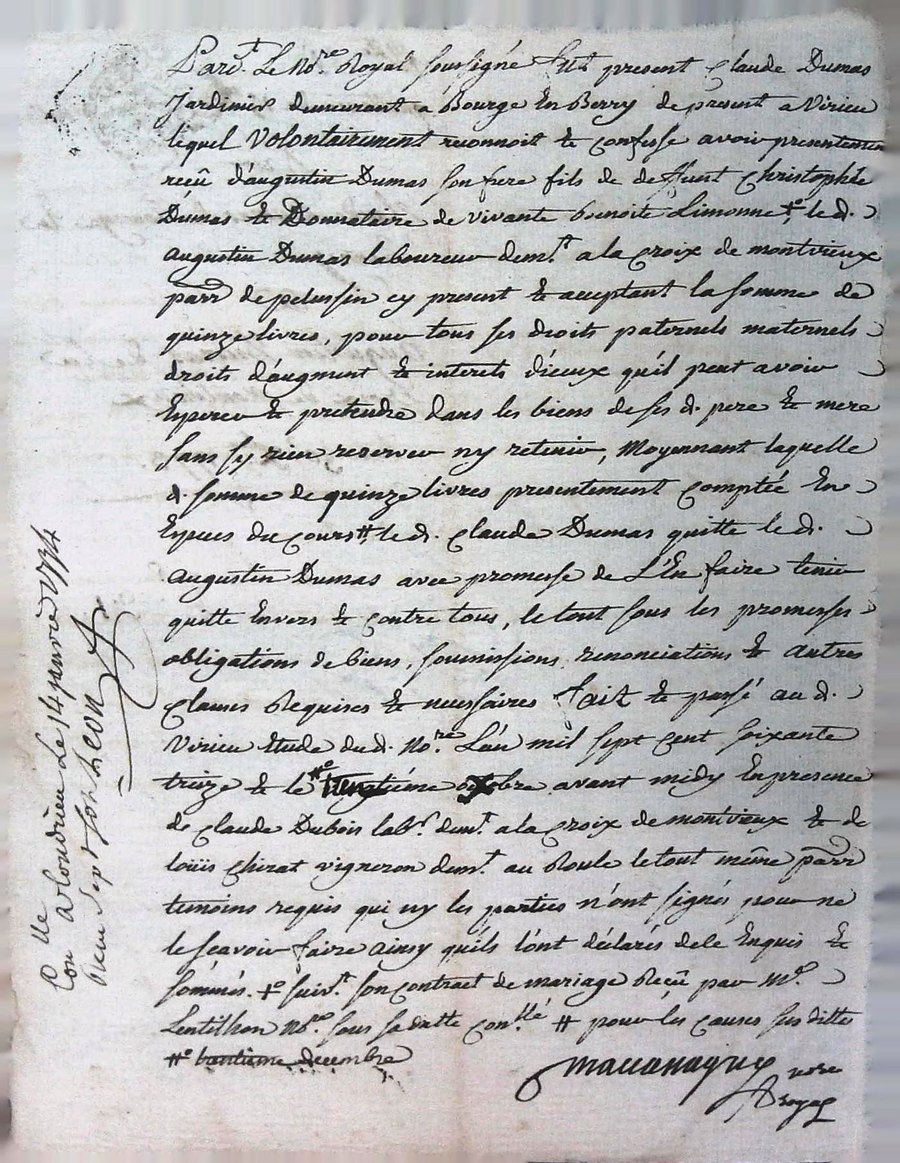 Pard.t Le No.re Royal soussigné fut present Claude Dumas
Jardinier demeurant a Bourge En Berry de present a Virieu
lequel volontairement reconnoit & confesse avoir presentemen
reçû d'augustin Dumas son frere fils de deffunt Christophle
Dumas & Donnataire de vivante benoite Limonne +° le d.
augustin Dumas laboureur dem.t a la Croix de montvieux
parr de pelussin cy present & acceptant la somme de
quinze livres, pour tous ses droits paternels maternels
droits d'augment & interets d'iceux qu'il peut avoir
Esperer & pretendre dans les biens de ses d. pere & mere
sans sy rien reserver ny retenir, moyennant laquelle
d. somme de quinze livres presentement comptée En
Especes du cours #, le d. Claude Dumas quitte le d.
augustin Dumas avec promesse de L'En faire tenir
quitte Envers & contre tous, le tout sous les promesses
obligations de biens, soumissions, renonciations & autres
clauses Requises & necessaires fait & passé au d.
Virieu Etude du d. No.re L'an mil sept cent soixante
treize & le #° octobre avant midy En presence
de Claude Dubois lab.r dem.t a la Croix de montvieux & de
loüis Chirat vigneron dem.t au Roule le tout même parr
temoins requis qui ny les parties n'ont signés pour ne
le scavoir faire ainsy qu'ils l'ont déclarés de ce Enquis &
sommés. +° suiv.t son contract de mariage Reçû par M.e
Lentilhon No.re sous sa datte con.llé # pour les causes sus dittes
#° decembre
no.re
Royal
Con.lle
A Condrieu Le 14 janvier 1774
Recu sept s